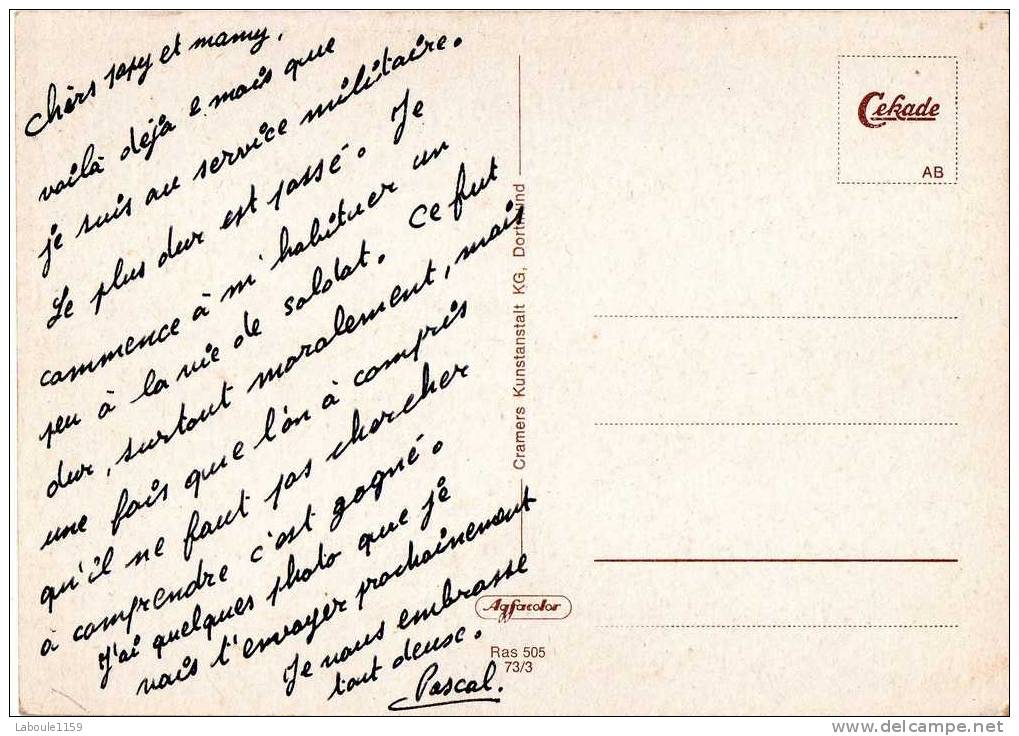 Chèrs papy et mamy,
voilà déjà 2 mois que
je suis au service militaire.
Le plus dur est passé. Je
commence à m'habituer un
peu à la vie de soldat. Ce fut
dur, surtout moralement, mais
une fois que l'on à compris
qu'il ne faut pas chercher
à comprendre c'est gagné.
J'ai quelques photo que je
vais t'envoyer prochainement
Je vous embrasse
tout deux.
Pascal.
Cramers Kunstanstalt KG, Dortmund
Agfacolor
Ras 505
73/3
Cekade
AB
Laboule1159
www.delcampe.net